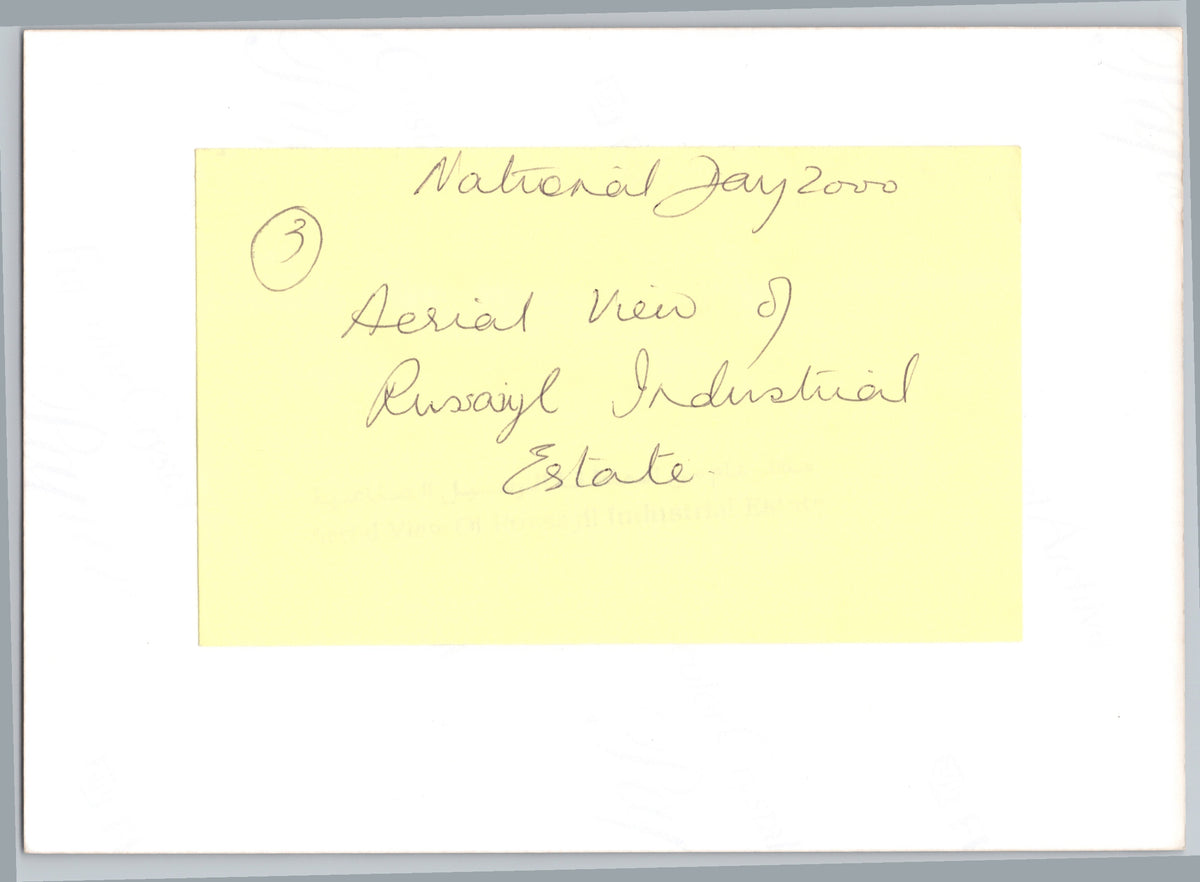 National Day 2000
3
Aerial View of
Russayl Industrial
Estate.
Aerial View Of Russayl Industrial Estate